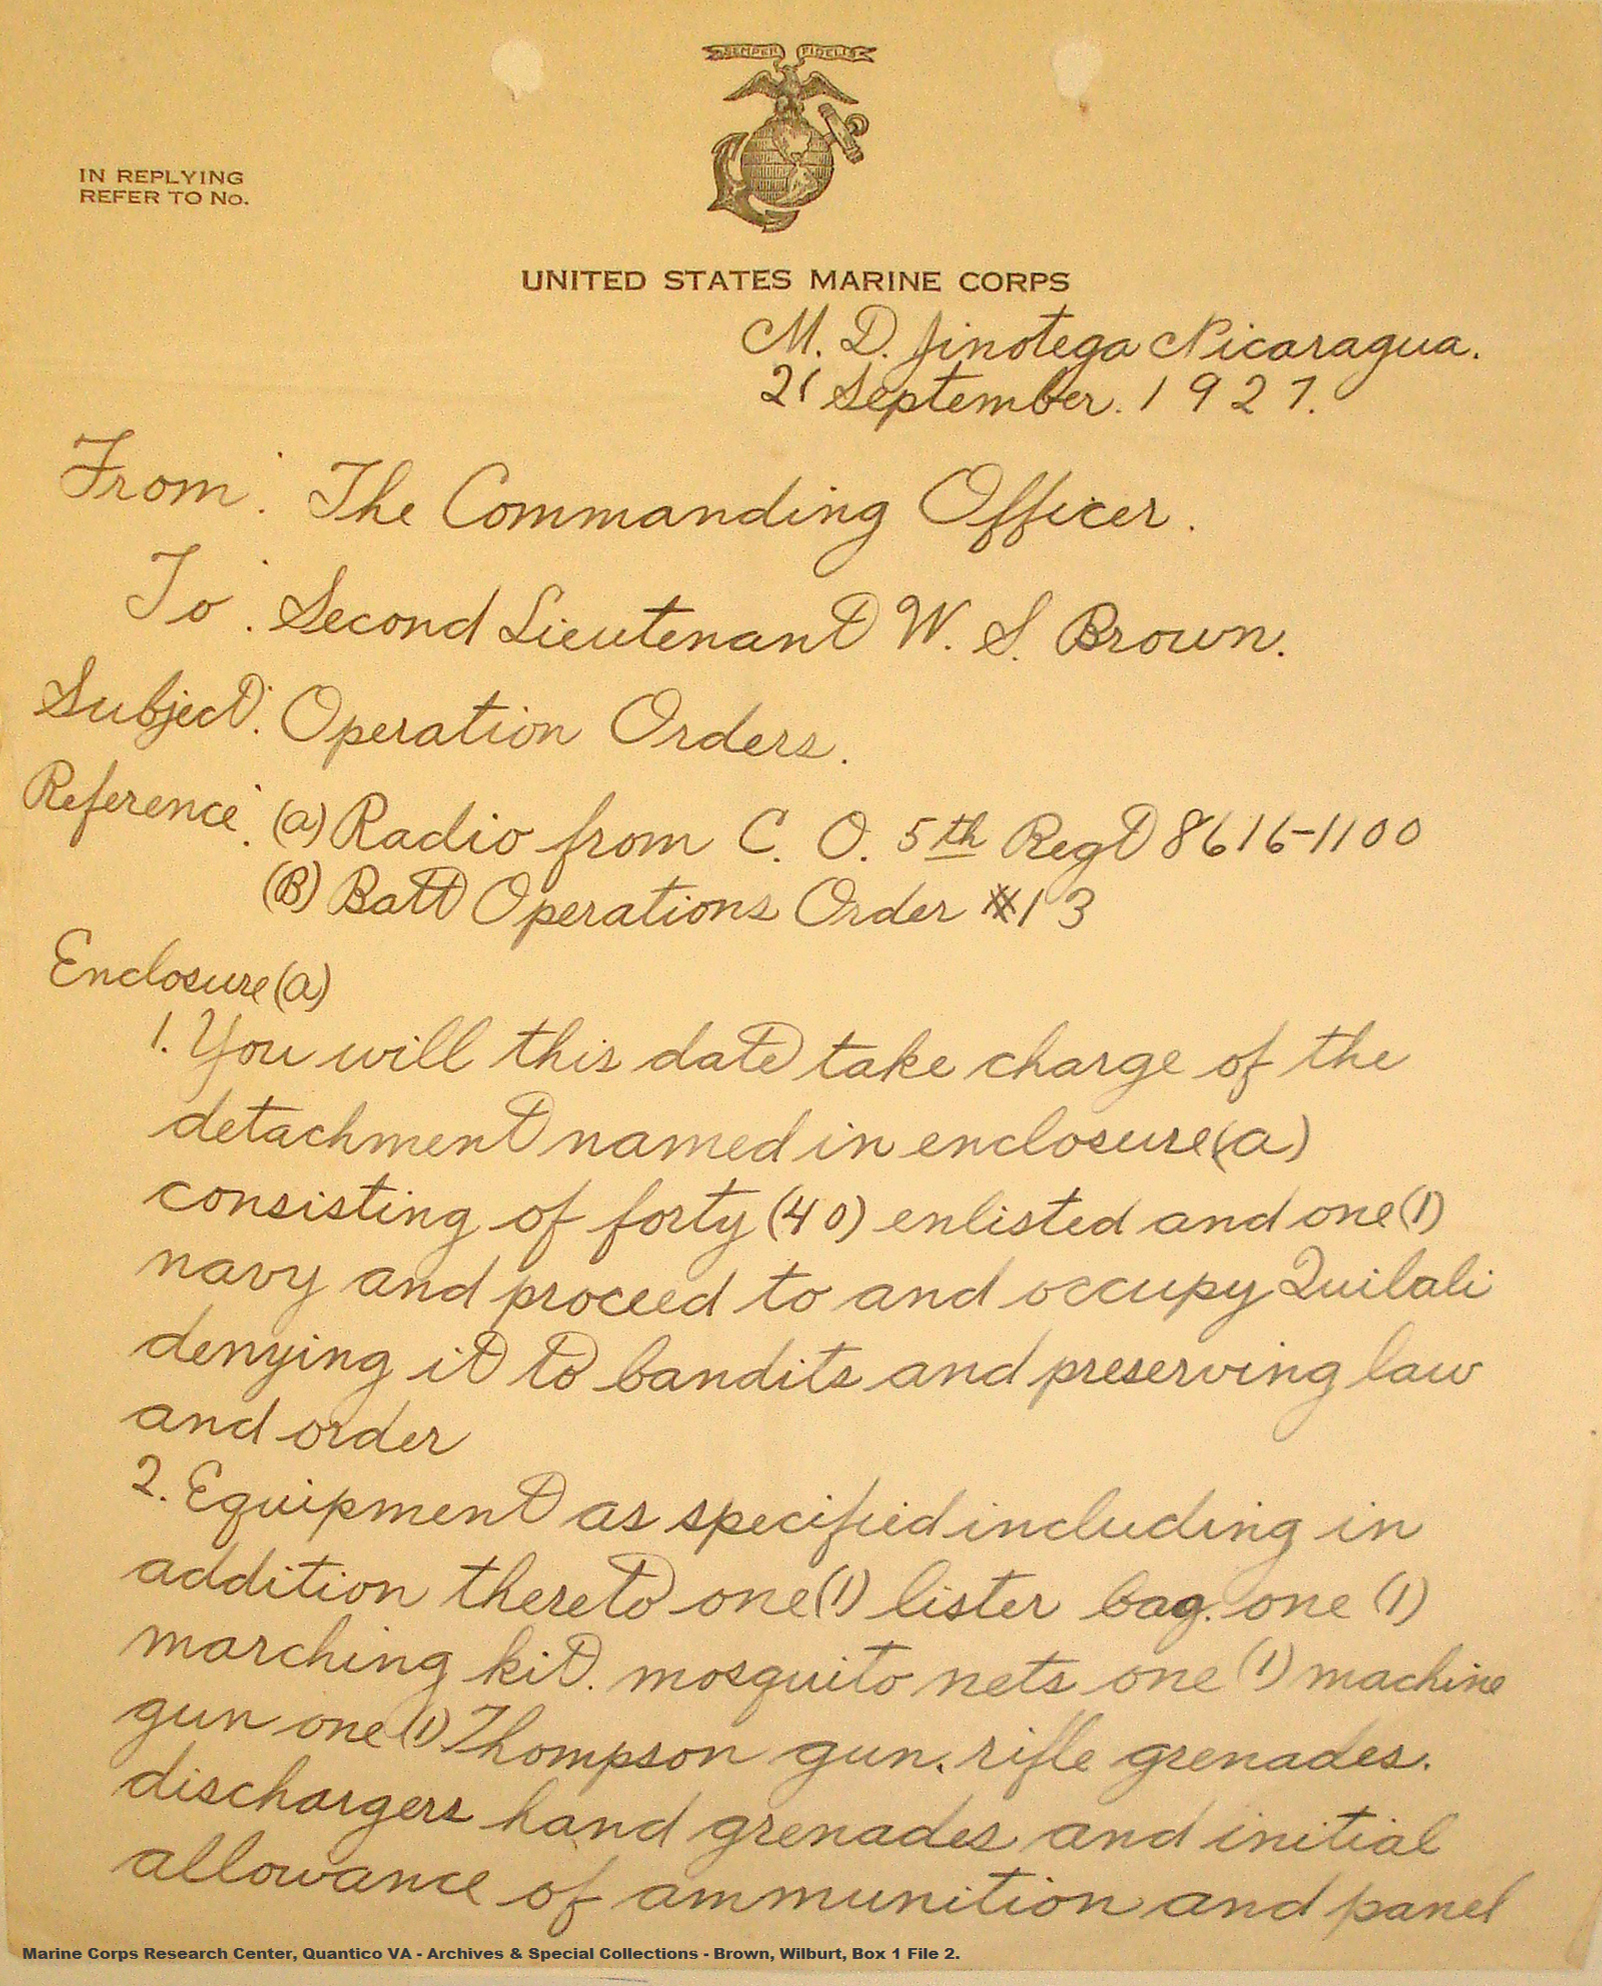 SEMPER FIDELIS
IN REPLYING
REFER TO No.
UNITED STATES MARINE CORPS
M. D. Jinotega Nicaragua.
21 September. 1927.
From: The Commanding Officer.
To: Second Lieutenant W. S. Brown.
Subject: Operation Orders.
Reference: (a) Radio from C. O. 5th Regt 8616-1100
(B) Batt Operations Order #13
Enclosure (a)
1. You will this date take charge of the
detachment named in enclosure (a)
consisting of forty (40) enlisted and one (1)
navy and proceed to and occupy Quilali
denying it to bandits and preserving law
and order
2. Equipment as specified including in
addition thereto one (1) lister bag. one (1)
marching kit. mosquito nets one (1) machine
gun one (1) Thompson gun. rifle grenades.
dischargers hand grenades and initial
allowance of ammunition and panel
Marine Corps Research Center, Quantico VA - Archives & Special Collections - Brown, Wilburt, Box 1 File 2.